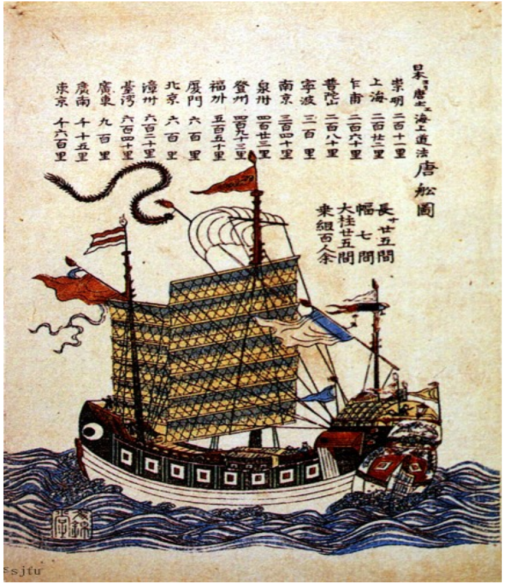 日本ヨリ唐土ヱ海上道法
唐舩圖
崇明 二百十一里
上海 二百廿二里
乍甫 二百六十里
普陀山 二百八十里
寧波 三百里
南京 三百四十里
泉州 四百廿三里
登州 四百九十三里
福州 五百五十里
厦門 六百里
北京 六百里
漳州 六百三十里
臺湾 六百四十里
廣東 九百里
廣南 千十五里
東京 千六百里
長サ廿五間
幅七間
大柱廿五間
乗組百人余